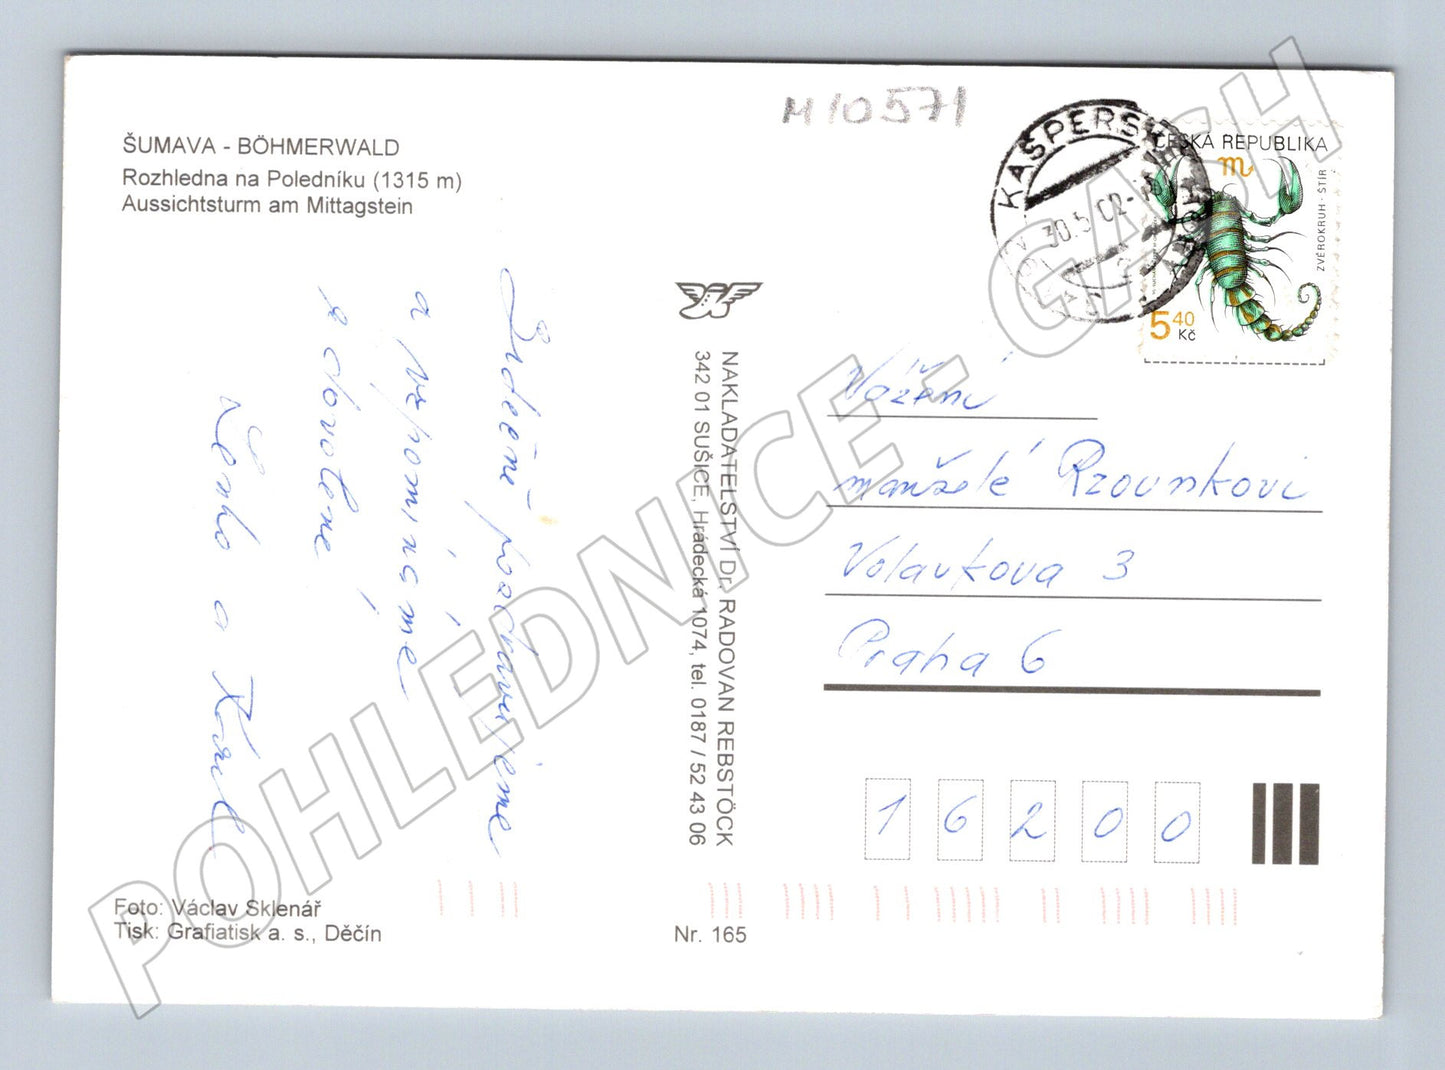 M10571
ŠUMAVA - BÖHMERWALD
Rozhledna na Poledníku (1315 m)
Aussichtsturm am Mittagstein
KAŠPERSKÉ HORY
30.5.02
ČESKÁ REPUBLIKA
ZVĚROKRUH · ŠTÍR
5 40
Kč
Srdečně pozdravujeme
a vzpomínáme
z dovolené
Lenka a Karel
NAKLADATELSTVÍ Dr. RADOVAN REBSTÖCK
342 01 SUŠICE, Hrádecká 1074, tel. 0187 / 52 43 06
Vážení
manželé Rzounkovi
Volavkova 3
Praha 6
16200
Foto: Václav Sklenář
Tisk: Grafiatisk a. s., Děčín
Nr. 165
POHLEDNICE - GASH